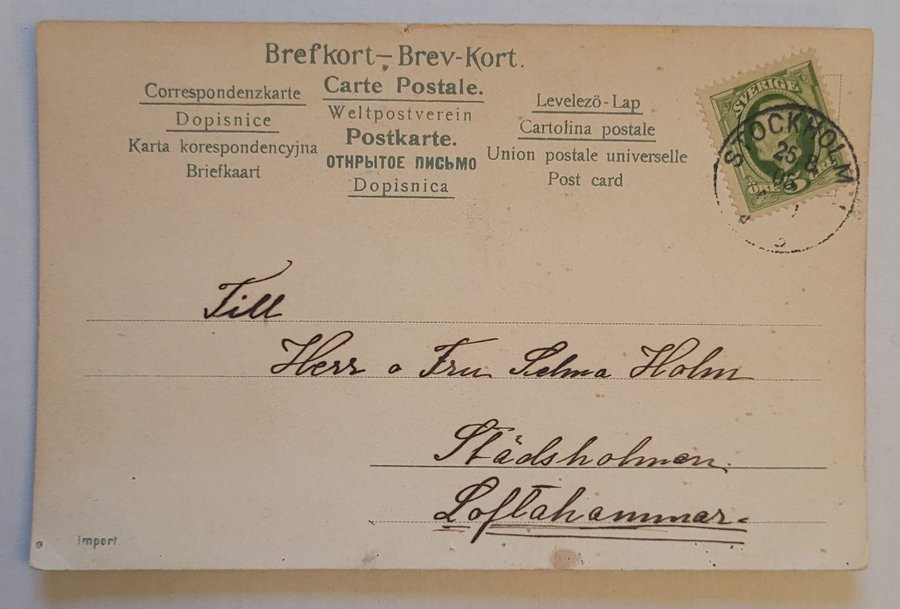 Brefkort – Brev-Kort.
Correspondenzkarte
Dopisnice
Karta korespondencyjna
Briefkaart
Carte Postale.
Weltpostverein
Postkarte.
ОТКРЫТОЕ ПИСЬМО
Dopisnica
Levelezö-Lap
Cartolina postale
Union postale universelle
Post card
SVERIGE
ÖRE 5
STOCKHOLM
25 8
Till
Herr o Fru Selma Holm
Städsholmen
Loftahammar
Import.